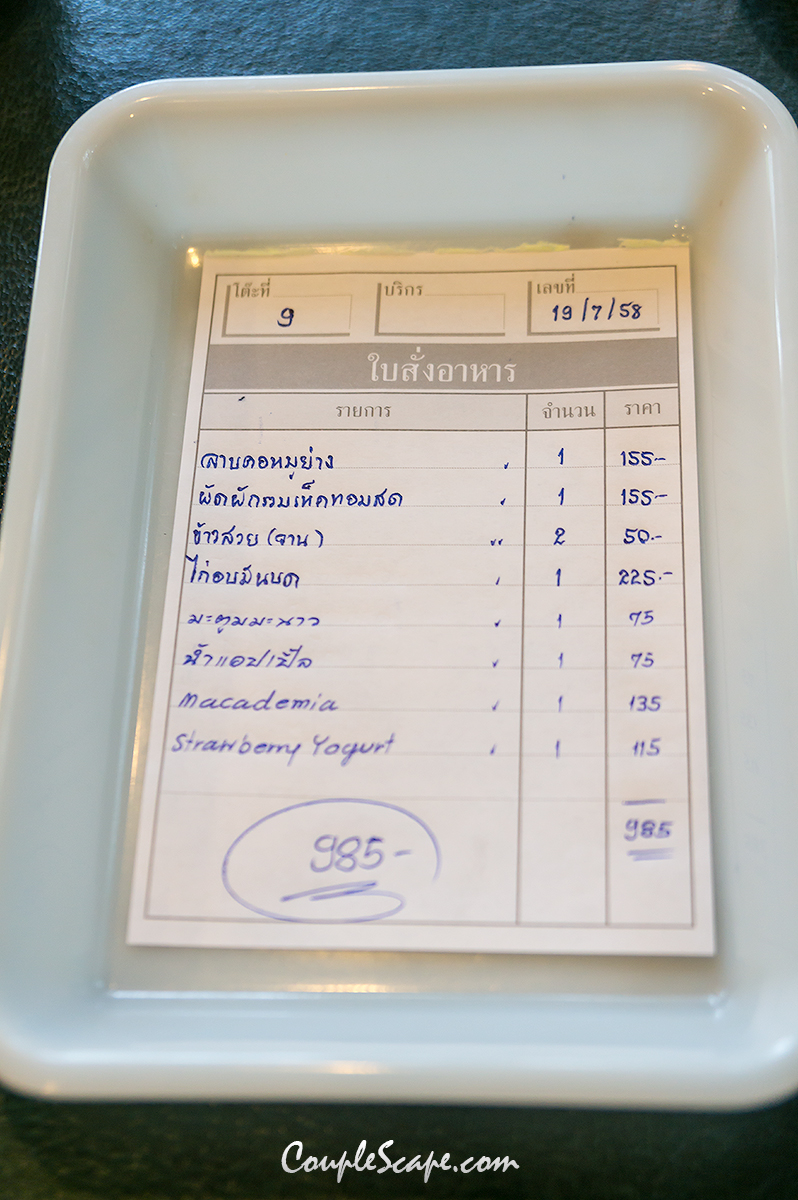 โต๊ะที่ บริกร เลขที่
9 19/7/58
ใบสั่งอาหาร
รายการ จำนวน ราคา
ลาบคอหมูย่าง 1 155.-
ผัดผักรวมเห็ดหอมสด 1 155.-
ข้าวสวย (จาน) 2 50.-
ไก่อบมันบด 1 225.-
มะตูมมะนาว 1 75
น้ำแอปเปิ้ล 1 75
Macademia 1 135
Strawberry Yogurt 1 115
985
985-
CoupleScape.com